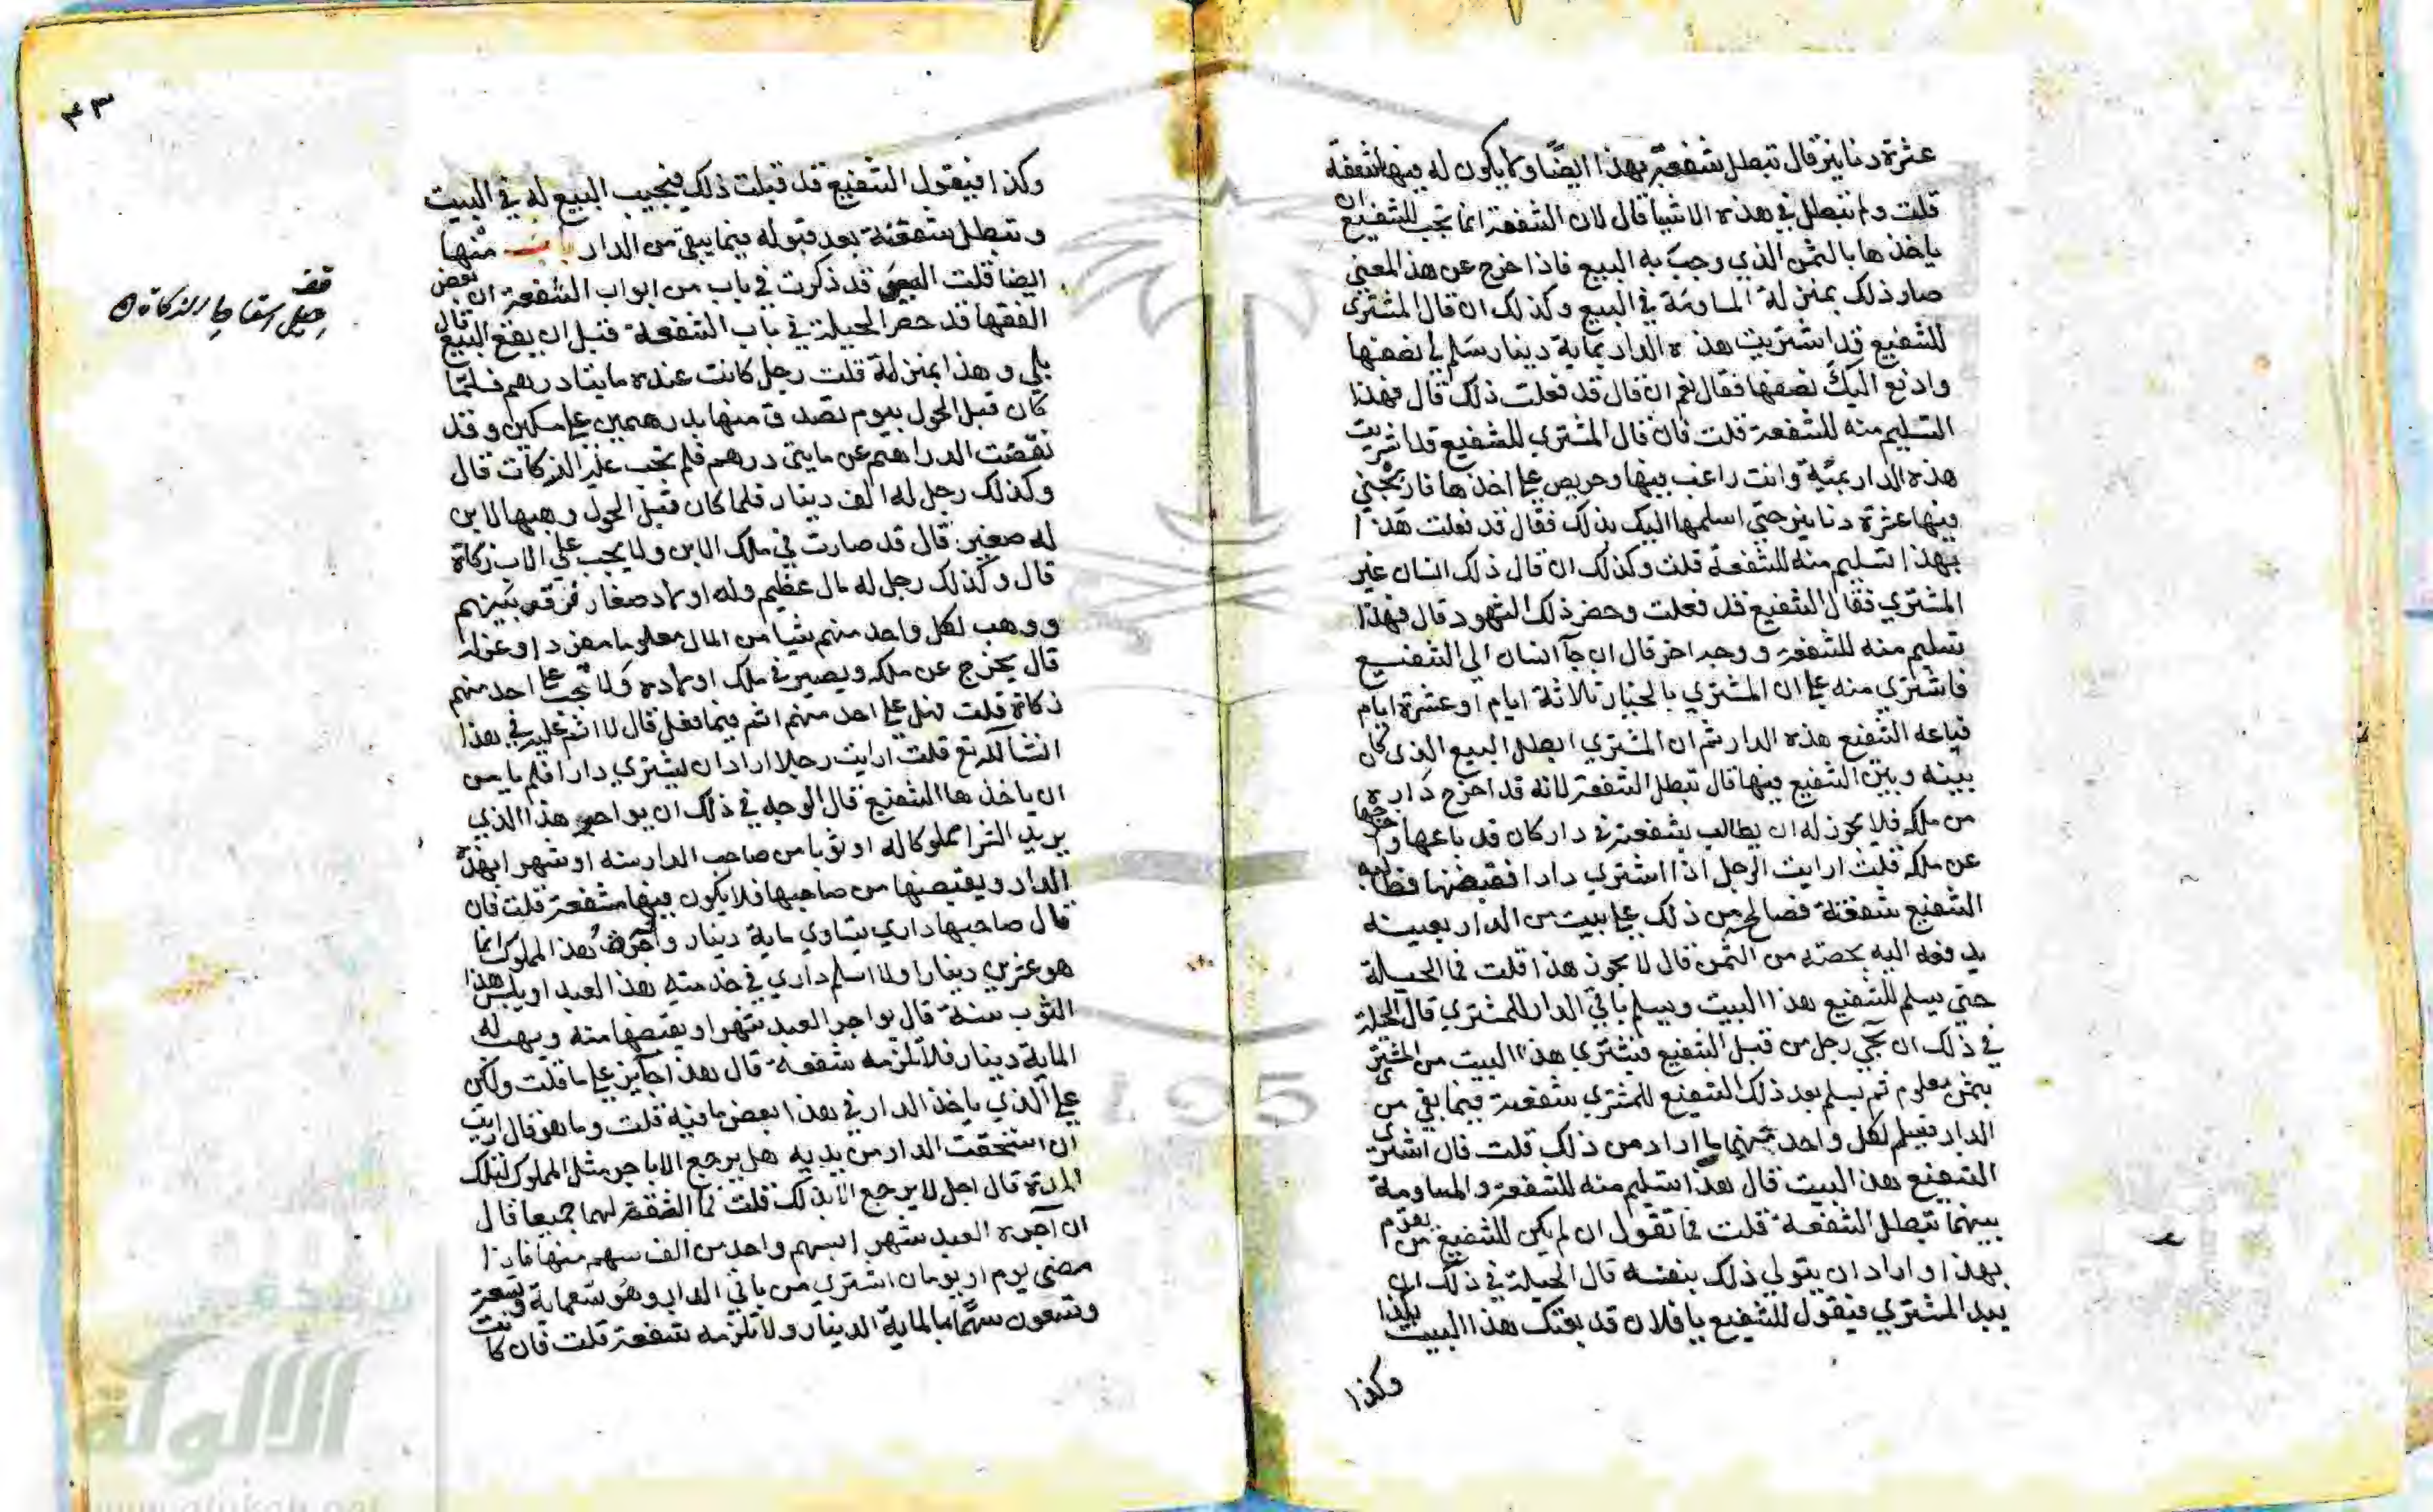 عشرة دنانير قال تبطل شفعته بهذا ايضًا ولا يكون له فيها شفعة
قلت ولم تبطل في هذه الاشيا قال لان الشفعة انما تجب للشفيع ان
ياخذها بالثمن الذي وجب به البيع فاذا خرج عن هذا المعني
صار ذلك بمنزلة المساومة في البيع وكذلك ان قال المشتري
للشفيع قد اشتريت هذه الدار بماية دينار سلم لي نصفها
وادفع اليك نصفها فقال نعم ان قال قد فعلت ذلك قال فهذا
التسليم منه للشفعة قلت فان قال المشتري للشفيع قد اشتريت
هذه الدار بمئة وانت راغب فيها وحريص علي اخذها فاربحني
فيها عشرة دنانير حتي اسلمها اليك بذلك فقال قد فعلت هذا
بهذا تسليم منه للشفعة قلت وكذلك ان قال ذلك انسان غير
المشتري فقال الشفيع قد فعلت وحضر ذلك الشهود قال فهذا
تسليم منه للشفعة ووجه اخر قال ان جآ انسان الي الشفيع
فاشتري منه علي ان المشتري بالخيار ثلاثة ايام او عشرة ايام
فباعه الشفيع هذه الدار ثم ان المشتري ابطل البيع الذي كان
بينه وبين الشفيع فيها قال تبطل الشفعة لانه قد اخرج داره
من ملكه فلا يجوز له ان يطالب بشفعة في دار كان قد باعها واخرجها
عن ملكه قلت ارايت الرجل اذا اشتري دارا فقبضها فطالبه
الشفيع شفعته فصالحه من ذلك علي بيت من الدار بعينه
يدفعه اليه بحصته من الثمن قال لا يجوز هذا قلت فما الحيلة
حتي يسلم للشفيع هذا البيت ويسلم باقي الدار للمشتري قال الحيلة
في ذلك ان يجي رجل من قبل الشفيع فيشتري هذا البيت من المشتري
بثمن معلوم ثم يسلم بعد ذلك الشفيع للمشتري شفعته فيما بقي من
الدار فيسلم لكل واحد منهما ما اراد من ذلك قلت فان اشتري
الشفيع هذا البيت قال هذا تسليم منه للشفعة والمساومة
بينهما تبطل الشفعة قلت فما تقول ان لم يكن للشفيع من يقوم
بهذا واراد ان يتولي ذلك بنفسه قال الحيلة في ذلك ان
يبد المشتري فيقول للشفيع يا فلان قد بعتك هذا البيت بكذا
وكذا
٤٣
وكذا فيقول الشفيع قد قبلت ذلك فيجيب البيع له في البيت
وتبطل شفعته بعد قبوله فيما بقي من الدار باب منها
ايضا قلت قد ذكرت في باب من ابواب الشفعة ان بعض
الفقها قد حضر الحيلة في باب الشفعة قبل ان يقع البيع قال
بلي وهذا بمنزلة قلت رجل كانت عنده مايتا درهم فلمّا
كان قبل الحول بيوم تصدق منها بدرهمين علي مسكين وقد
نقصت الدراهم عن مايتي درهم فلم تجب عليه الزكات قال
وكذلك رجل له الف دينار فلما كان قبل الحول وهبها لابن
له صغير قال قد صارت في ملك الابن ولا يجب علي الاب زكاة
قال وكذلك رجل له مال عظيم وله اولاد صغار فرقه بينهم
ووهب لكل واحد منهم شيا من المال معلوما مفردا وعزله
قال يخرج عن ملكه ويصير في ملك اولاده ولا تجب علي احد منهم
زكاة قلت فهل علي احد منهم اثم فيما فعل قال لا اثم عليه في هذا
انشآ الله تع قلت ارايت رجلا اراد ان يشتري دارا فلم يامن
ان ياخذها الشفيع قال الوجه في ذلك ان يواجر هذا الذي
يريد الشرا مملوكا له او ثوبا من صاحب الدار سنه او شهر ابهذه
الدار ويقبضها من صاحبها فلا يكون فيها شفعة قلت فان
قال صاحبها داري تساوي ماية دينار واجرة هذا المملوك انما
هو عشرين دينارا ولا اسلم داري في خدمة هذا العبد او يلبس هذا
الثوب سنة قال يواجر العبد شهرا ويقبضها منه ويهب له
الماية دينار فلا تلزمه شفعة قال هذا جآيز علي ما قلت ولكن
علي الذي ياخذ الدار في هذا بعض ما فيه قلت وما هو قال ارايت
ان استحقت الدار من يديه هل يرجع الا باجر مثل المملوك لتلك
المدة قال اجل لا يرجع الا بذلك قلت فما الثقة لهما جميعا قال
ان آجره العبد شهرا بسهم واحد من الف سهم منها فاذا
مضي يوم او يومان اشتري من باقي الدار وهو تسعماية وتسعة
وتسعون سهمًا بالماية الدينار ولا تلزمه شفعة قلت فان كانت
قف
احيل اسقاط الزكاة
الألوكة
www.alukah.net